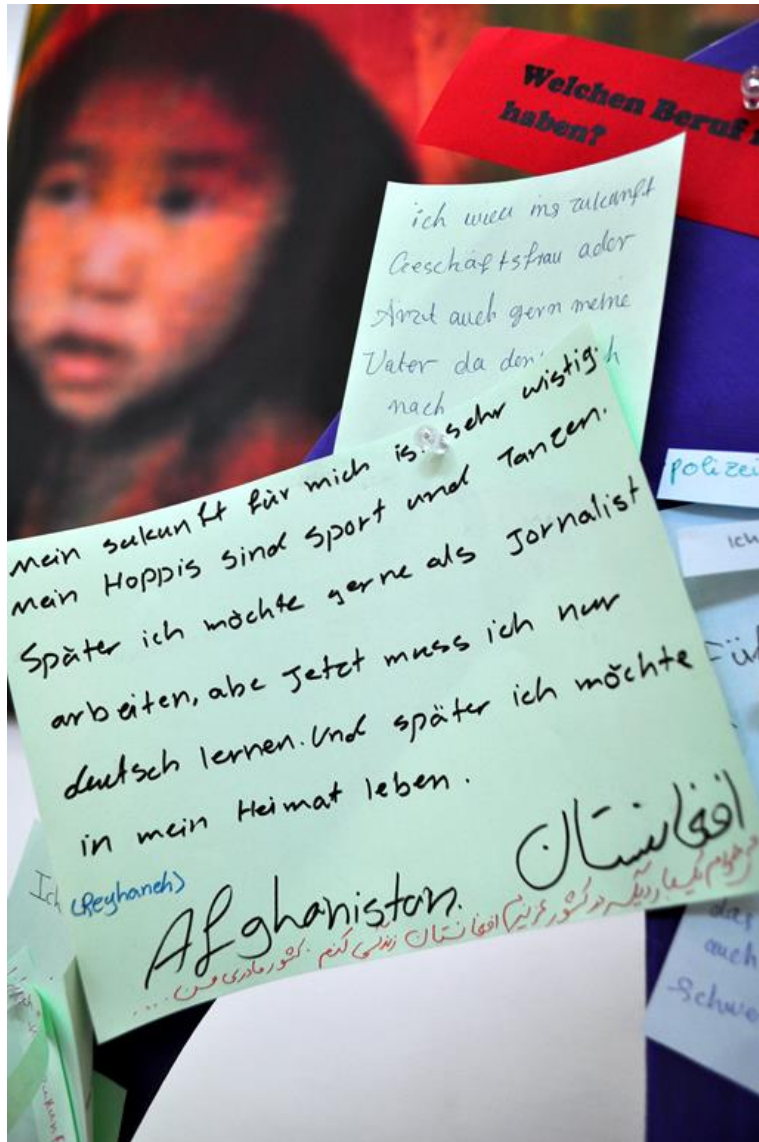 Welchen Beruf
haben?
ich will ins zukunft
Geschäftsfrau ader
Arzt auch gern meine
Vater da
nach
mein sukunft für mich is sehr wistig.
mein Hoppis sind sport und Tanzen.
Später ich möchte gerne als Jornalist
arbeiten, abe jetzt muss ich nur
deutsch lernen. Und später ich möchte
in mein Heimat leben.
افغانستان
(Reyhaneh)
Afghanistan.
می‌خواهم یکبار دیگه در کشور عزیزم افغانستان زندگی کنم. کشور مادری من ....
polizei
ich
Ich
das
auch
Schwe